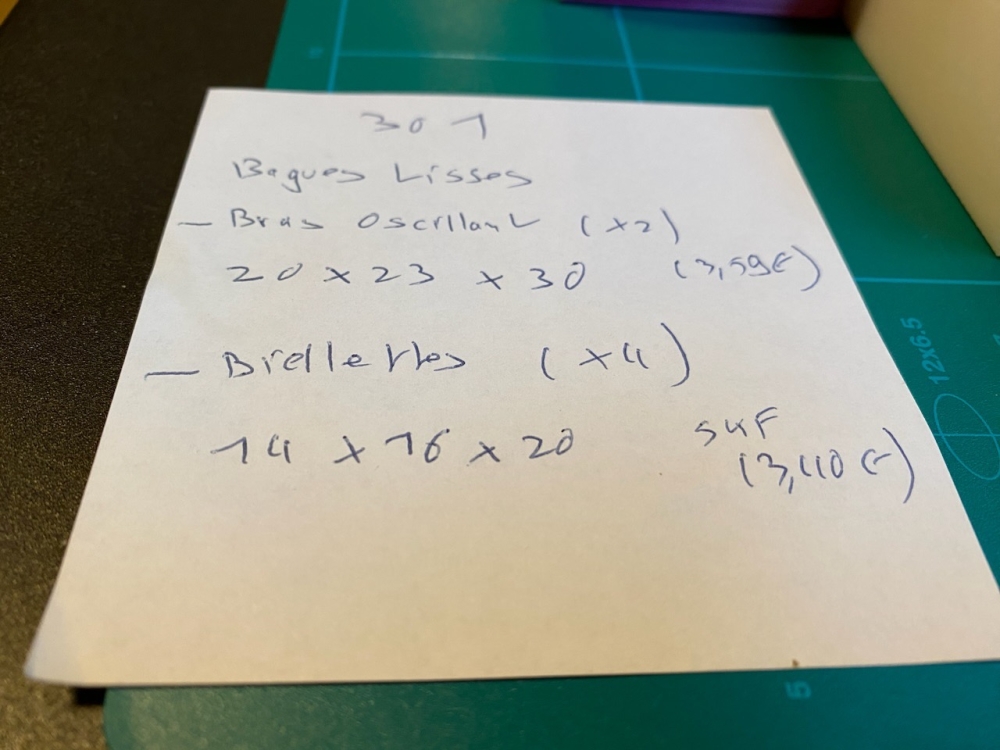 301
Bagues Lisses
- Bras Oscillant (x2)
20 x 23 x 30 (3,59€)
- Biellettes (x4)
14 x 16 x 20 SKF
(3,40€)
12x6.5
5